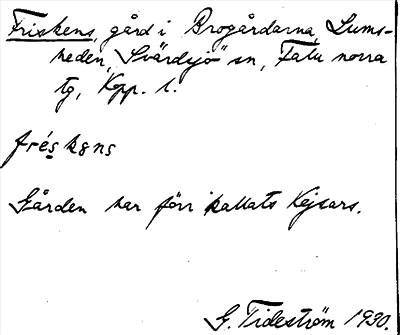 Friskens, gård i Brogårdarna, Lums-
heden, Svärdsjö sn, Falu norra
tg, Kopp. l.
fréskəns
Gården har förr kallats Kejsars.
G. Tideström 1930.